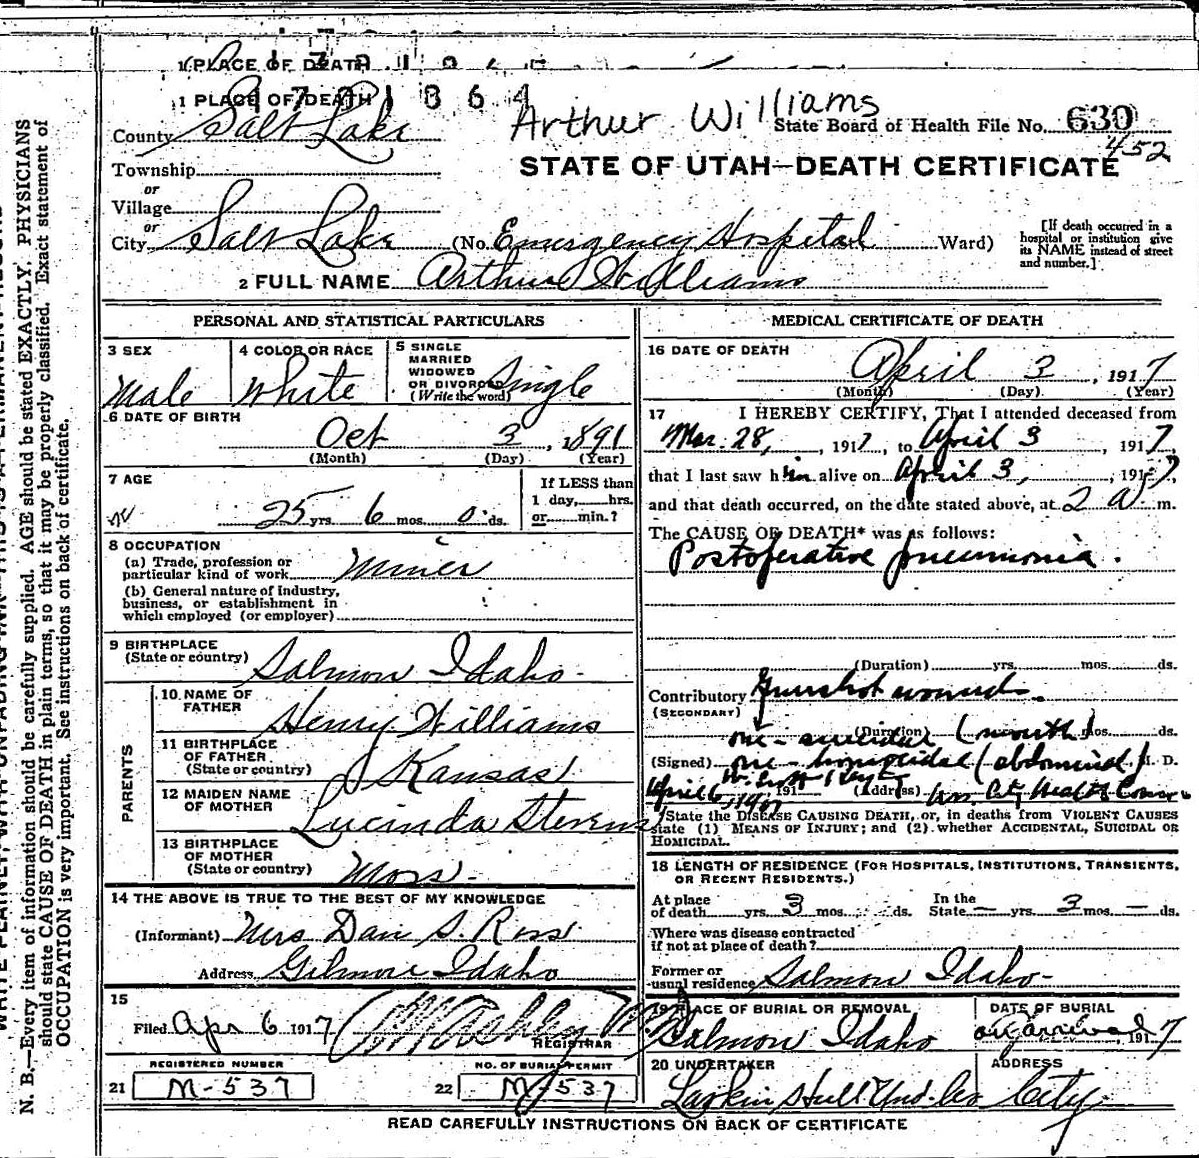 1 PLACE OF DEATH
1 PLACE OF DEATH
County Salt Lake
Arthur Williams
State Board of Health File No. 630
452
Township
or
Village
or
STATE OF UTAH—DEATH CERTIFICATE
City Salt Lake (No. Emergency Hospital Ward)
[If death occurred in a hospital or institution give its NAME instead of street and number.]
2 FULL NAME Arthur Williams
PERSONAL AND STATISTICAL PARTICULARS
3 SEX
Male
4 COLOR OR RACE
White
5 SINGLE
MARRIED
WIDOWED
OR DIVORCED
(Write the word)
Single
6 DATE OF BIRTH
Oct 3, 1891
(Month) (Day) (Year)
7 AGE
25 yrs. 6 mos. 0 ds.
If LESS than
1 day, hrs.
or min.?
8 OCCUPATION
(a) Trade, profession or
particular kind of work Miner
(b) General nature of industry,
business, or establishment in
which employed (or employer)
9 BIRTHPLACE
(State or country) Salmon Idaho
PARENTS
10 NAME OF
FATHER Henry Williams
11 BIRTHPLACE
OF FATHER
(State or country) Kansas
12 MAIDEN NAME
OF MOTHER Lucinda Stevens
13 BIRTHPLACE
OF MOTHER
(State or country) Moss
14 THE ABOVE IS TRUE TO THE BEST OF MY KNOWLEDGE
(Informant) Mrs Dan S. Ross
Address Gilmore Idaho
15
Filed Apr 6 1917
REGISTRAR
REGISTERED NUMBER
21 M-537
NO. OF BURIAL PERMIT
22 M-537
MEDICAL CERTIFICATE OF DEATH
16 DATE OF DEATH
April 3, 1917
(Month) (Day) (Year)
17 I HEREBY CERTIFY, That I attended deceased from
Mar. 28, 1917, to April 3, 1917,
that I last saw him alive on April 3, 1917,
and that death occurred, on the date stated above, at 2 a m.
The CAUSE OF DEATH* was as follows:
Postoperative pneumonia.
(Duration) yrs. mos. ds.
Contributory Gunshot wounds.
(SECONDARY)
(Duration) mos. ds.
one - suicidal (mouth)
(Signed) one - homicidal (abdominal) M. D.
April 6, 1917 191 (Address)
*State the DISEASE CAUSING DEATH, or, in deaths from VIOLENT CAUSES
state (1) MEANS OF INJURY; and (2) whether ACCIDENTAL, SUICIDAL OR
HOMICIDAL.
18 LENGTH OF RESIDENCE (FOR HOSPITALS, INSTITUTIONS, TRANSIENTS,
OR RECENT RESIDENTS.)
At place
of death yrs. 3 mos. ds.
In the
State — yrs. 3 mos. — ds.
Where was disease contracted
if not at place of death?
Former or
usual residence Salmon Idaho
19 PLACE OF BURIAL OR REMOVAL
Salmon Idaho
DATE OF BURIAL
on arrival, 1917
20 UNDERTAKER
Larkin Hull Und. Co
ADDRESS
City
READ CAREFULLY INSTRUCTIONS ON BACK OF CERTIFICATE
N. B.—Every item of information should be carefully supplied. AGE should be stated EXACTLY. PHYSICIANS
should state CAUSE OF DEATH in plain terms, so that it may be properly classified. Exact statement of
OCCUPATION is very important. See instructions on back of certificate.